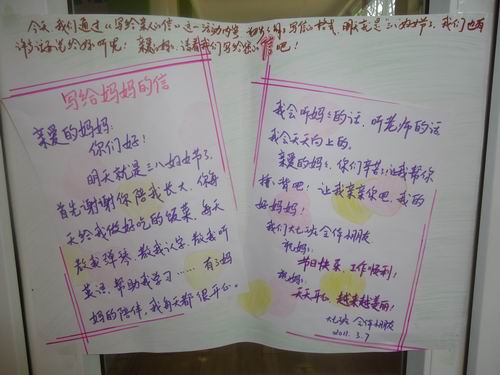 今天我们通过《写给亲人的信》这一活动内容,初步了解写信格式,明天就是三八妇女节了,我们也有
许多话说给妈妈听呢!亲爱的妈妈,请看我们写给您的信吧!
写给妈妈的信
亲爱的妈妈:
你们好!
明天就是三八妇女节了,
首先谢谢你陪我长大,你每
天给我做好吃的饭菜,每天
教我弹琴、教我认字、教我听
英语、帮助我学习……有了妈
妈的陪伴,我每天都很开心。
我会听妈妈的话、听老师的话
我会天天向上的。
亲爱的妈妈,你们辛苦了,让我帮你
捶捶背吧!让我亲亲你吧,我的
好妈妈!
我们大七班全体小朋友
祝妈妈:
节日快乐、工作顺利!
祝妈妈:
天天开心,越来越美丽!
大七班 全体小朋友
2011.3.7